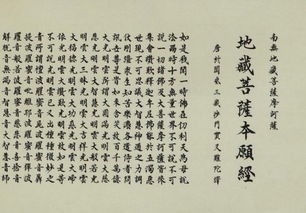 南無地藏菩薩摩訶薩
地藏菩薩本願經
唐于闐國三藏沙門實叉難陀譯
如是我聞一時佛在忉利天為母說
法爾時十方無量世界不可說不可
說一切諸佛及大菩薩摩訶薩皆來
集會讚歎釋迦牟尼佛能於五濁惡
世現不可思議大智慧神通之力調
伏剛強眾生知苦樂法各遣侍者問
訊世尊是時如來含笑放百千萬億
大光明雲所謂大圓滿光明雲大慈
悲光明雲大智慧光明雲大般若光
明雲大三昧光明雲大吉祥光明雲
大福德光明雲大功德光明雲大歸
依光明雲大讚歎光明雲放如是等
不可說光明雲已又出種種微妙之
音所謂檀波羅蜜音尸波羅蜜音羼
提波羅蜜音毗離耶波羅蜜音禪波
羅蜜音般若波羅蜜音慈悲音喜捨音
解脫音無漏音智慧音大智慧音師